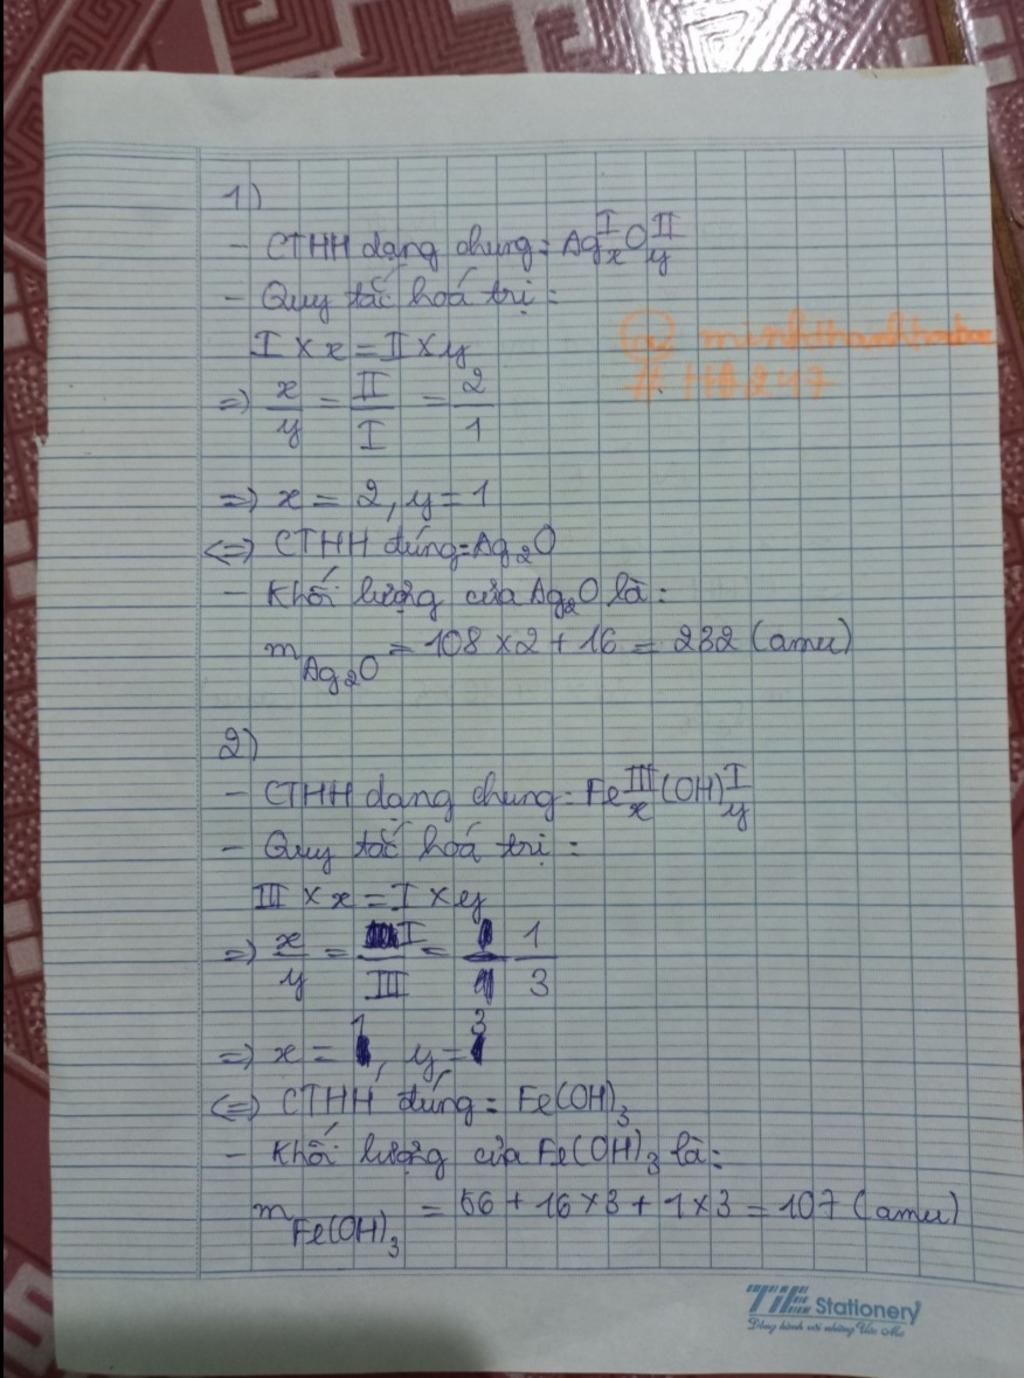 1)
- CTHH dạng chung: Ag^I_x O^II_y
- Quy tắc hoá trị:
I × x = II × y
=> x/y = II/I = 2/1
=> x = 2, y = 1
<=> CTHH đúng: Ag₂O
- Khối lượng của Ag₂O là:
m_Ag₂O = 108 × 2 + 16 = 232 (amu)
2)
- CTHH dạng chung: Fe^III_x (OH)^I_y
- Quy tắc hoá trị:
III × x = I × y
=> x/y = I/III = 1/3
=> x = 1, y = 3
<=> CTHH đúng: Fe(OH)₃
- Khối lượng của Fe(OH)₃ là:
m_Fe(OH)₃ = 56 + 16 × 3 + 1 × 3 = 107 (amu)
TIE Stationery